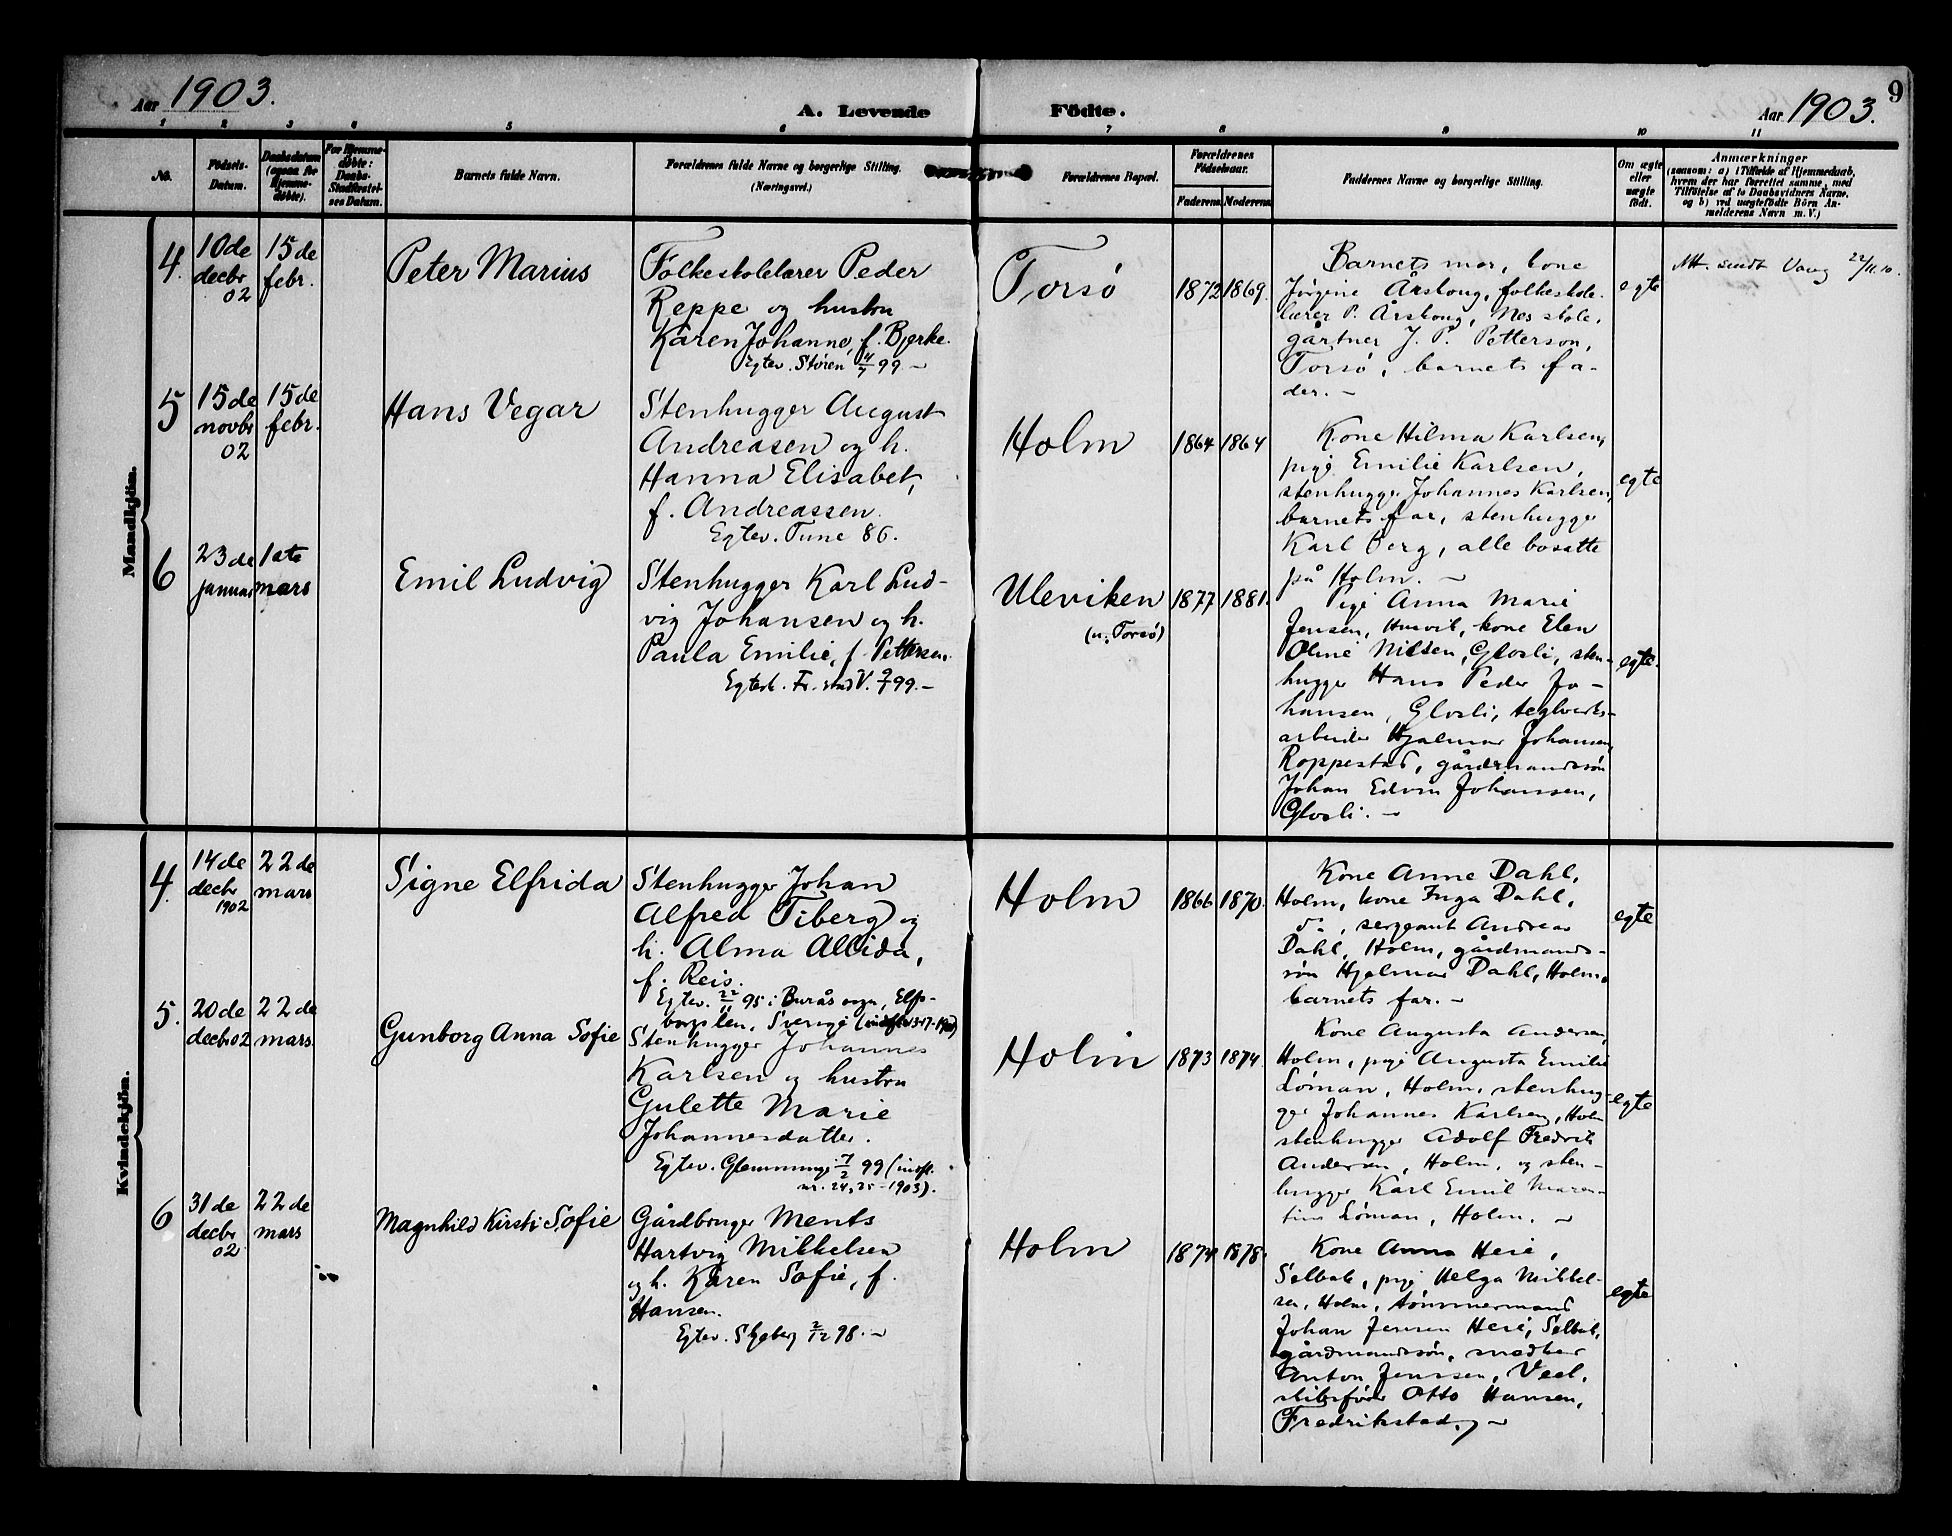 Aar 1903.
A. Levende Födte.
Aar 1903.
9
1 2 3 4 5 6 7 8 9 10 11
No.
Födsels-
Datum.
Daabsdatum
(ogsaa for
Hjemme-
döbte).
For Hjemme-
döbte:
Daabs-
Stadfæstel-
ses Datum.
Barnets fulde Navn.
Forældrenes fulde Navne og borgerlige Stilling.
(Næringsvei.)
Forældrenes Bopæl.
Forældrenes
Födselsaar.
Faderens. Moderens.
Faddernes Navne og borgerlige Stilling.
Om ægte
eller
uægte
födt.
Anmærkninger
(saasom: a) i Tilfælde af Hjemmedaab,
hvem der har forrettet samme, med
Tilföielse af to Daabsvidners Navne.
og b) ved uægtefödte Börn An-
melderens Navn m. V.)
Mandkjön.
4.
10de
decbr
02
15de
febr.
Peter Marius
Folkeskolelærer Peder
Reppe og hustru
Karen Johanne, f. Bjerke.
Egtev. Støren 4/7 99 -
Torsø
1872
1869.
Barnets mor, kone
Jørgine Årsboug, folkeskole-
lærer P. Årsboug, Nes skole,
gårtner J. P. Petterson,
Torsø, barnets fa-
der. -
egte
Att. sendt Vang 22/11.10.
5
15de
novbr
02
15de
febr.
Hans Vegar
Stenhugger August
Andreasen og h.
Hanna Elisabet,
f. Andreassen.
Egtev. Tune 86.
Holm
1864
1864
Kone Hilma Karlsen,
pige Emilie Karlsen,
stenhugger Johannes Karlsen,
barnets far, stenhugger
Karl Berg, alle bosatte
på Holm. -
egte
6
23de
januar
1ste
mars
Emil Ludvig
Stenhugger Karl Lud-
vig Johansen og h.
Paula Emilie, f. Pettersen.
Egtev. Fr.stad V. 99. -
Uleviken
(u. Torsø)
1877
1881.
Pige Anna Marie
Jensen, kone Elen
Oline Nilsen, Glosli, sten-
hugger Hans Peder Jo-
hansen, Glosli, teglverks-
arbeider Hjalmar Johansen,
Roppestad, gårdmandssøn
Johan Edvin Johansen,
Glosli. -
egte.
Kvindekjön.
4.
14de
decbr
1902
22de
mars
Signe Elfrida
Stenhugger Johan
Alfred Tiberg og
h. Alma Allida,
f. Reis.
Egtev. 22/11 95 i Burås sogn, Elfs-
borgs len, Sverige
Holm
1866
1870.
Kone Anne Dahl,
Holm, kone Inga Dahl,
do, sergeant Andreas
Dahl, Holm, gårdmands-
søn Hjalmar Dahl, Holm,
barnets far. -
egte
5.
20de
decbr02
22de
mars
Gunborg Anna Sofie
Stenhugger Johannes
Karlsen og hustru
Gulette Marie
Johannesdatter.
Egtev. Glemminge 7/2 99 (indfl.
nr. 24, 25 - 1903).
Holm
1873
1874.
Kone Augusta Andersen,
Holm, pige Augusta Emilie
Löman, Holm, stenhug-
ger Johannes Karlsen, Holm
stenhugger Adolf Fredrik
Andersen, Holm, og sten-
hugger Karl Emil Maren-
tius Löman, Holm. -
egte
6
31de
decbr
02
22de
mars
Magnhild Kirsti Sofie
Gårdbruger Ments
Hartvig Mikkelsen
og h. Karen Sofie, f.
Hansen.
Egtev. Skjeberg 2/12 98. -
Holm
1874
1878.
Kone Anna Heie,
Selbak, pige Helga Mikkel-
sen, Holm, tømmermand
Johan Jensen Heie, Selbak,
gårdmandssøn, snedker
Anton Jenssen, Veel,
skibsfører Otto Hansen,
Fredrikstad. -
egte